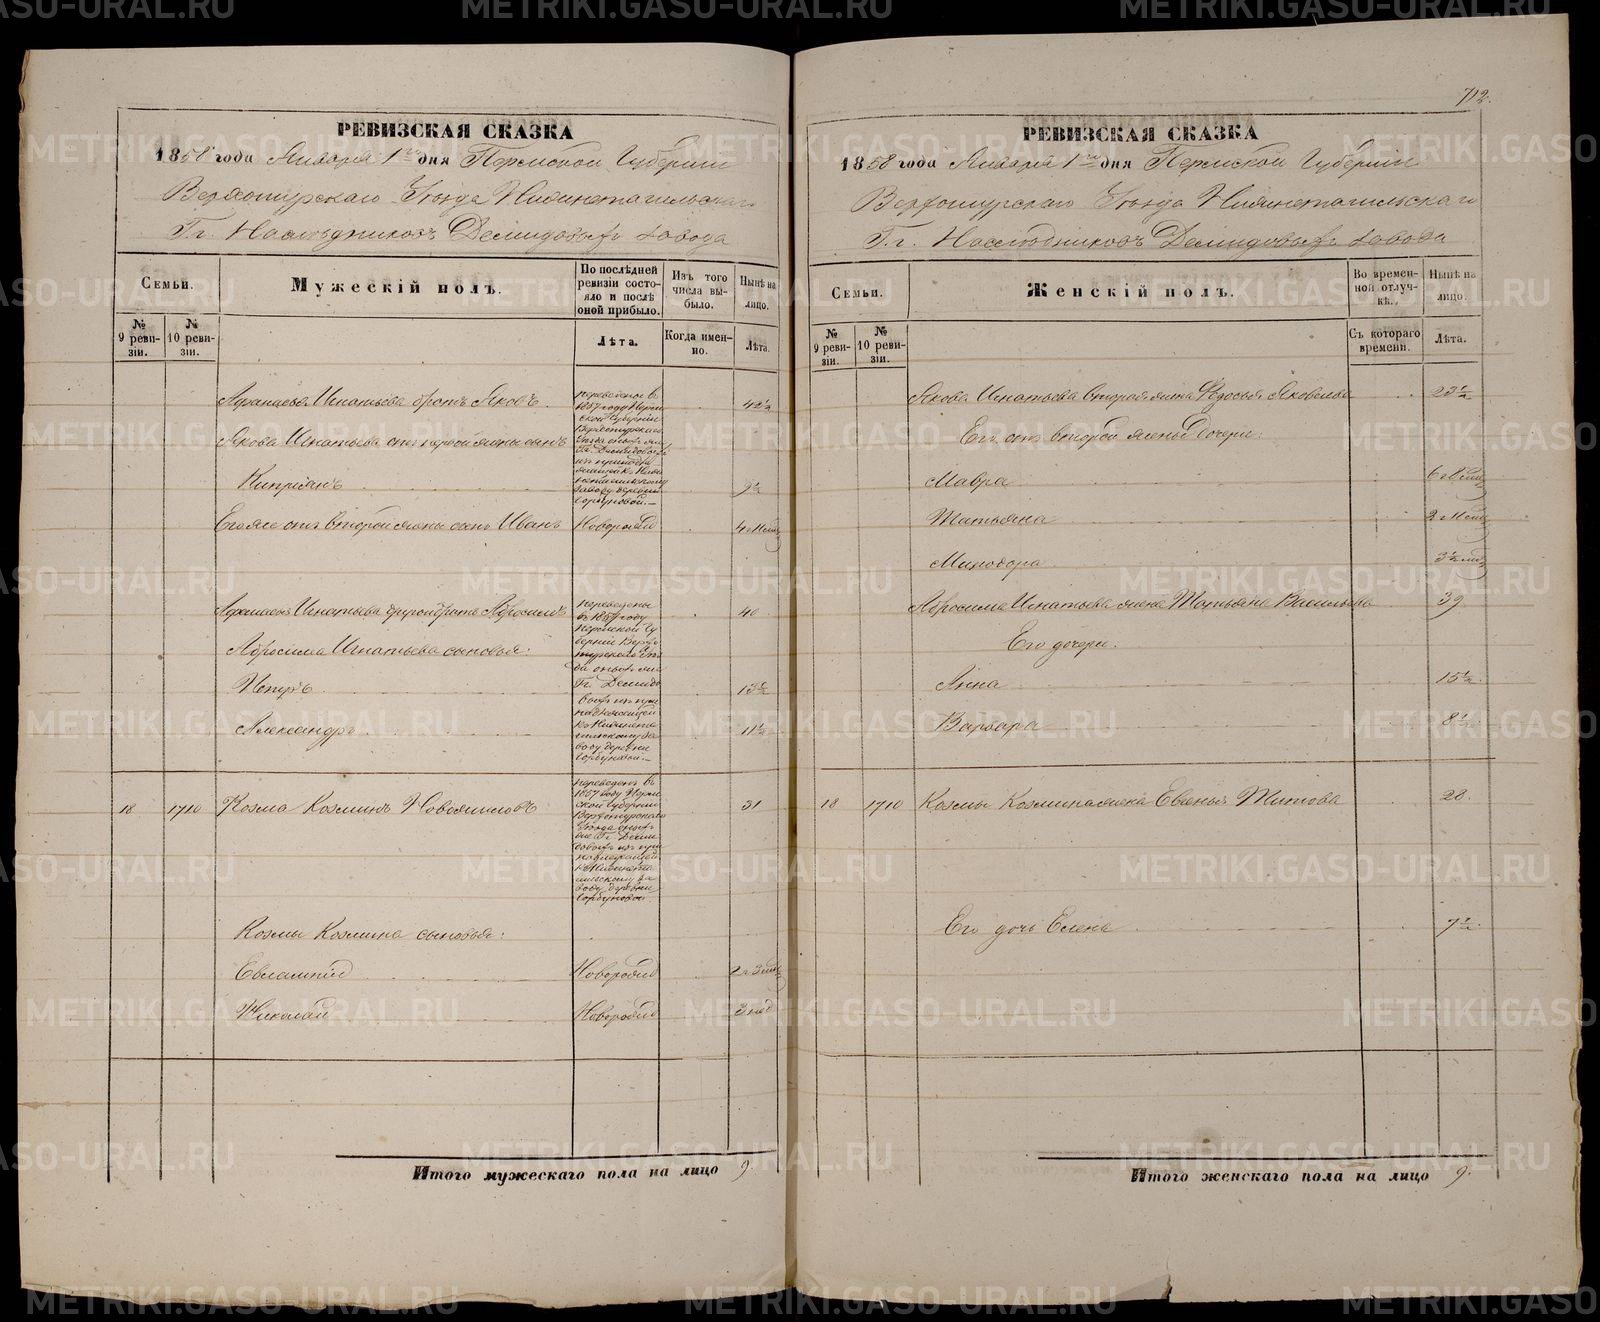 712.
РЕВИЗСКАЯ СКАЗКА
1858 года Января 1го дня Пермской Губернии
Верхотурскаго Уезда Нижнетагильскаго
Гг. Наследниковъ Демидовыхъ завода
Семьи.
Мужескій полъ.
По послѣдней ревизіи состояло и послѣ оной прибыло.
Изъ того числа выбыло.
Нынѣ на лицо.
№ 9 ревизіи.
№ 10 ревизіи.
Лѣта.
Когда именно.
Лѣта.
Афанасья Игнатьева братъ Яковъ
переведены въ
1857 году Перм
ской Губерніи
Верхотурскаго
Уезда
42½
Якова Игнатьева отъ первой жены сынъ
Кипріанъ
9½
Его же отъ второй жены сынъ Иванъ
Новорожд
4 мец
Афанасья Игнатьева другой братъ Абросимъ
переведены
въ 1857 году
Пермской Гу
берніи Верхо
турскаго Уѣз
40
Абросима Игнатьева сыновья:
Петръ
13½
Александръ
11½
18
1710
Козма Козминъ Новожиловъ
переведенъ въ
1857 году Перм
ской Губерніи
Верхотурскаго
31
Козмы Козмина сыновья:
Евлампій
Новорожд
Николай
Новорожд
3 нед
Итого мужескаго пола на лицо 9.
РЕВИЗСКАЯ СКАЗКА
1858 года Января 1го дня Пермской Губерніи
Верхотурскаго Уезда Нижнетагильскаго
Гг. Наследниковъ Демидовыхъ завода
Семьи.
Женскій полъ.
Во временной отлучкѣ.
Нынѣ на лицо.
№ 9 ревизіи.
№ 10 ревизіи.
Съ котораго времени.
Лѣта.
Якова Игнатьева вторая жена Федосья Яковлева
23½
Его отъ второй жены дочери:
Мавра
Татьяна
Минодора
Абросима Игнатьева жена Татьяна Васильева
39
Его дочери.
Анна
15½
Варвара
8½
18
1710
Козмы Козмина жена Евгенья Титова
28
Его дочь Елена
7½
Итого женскаго пола на лицо 9.
METRIKI.GASO-URAL.RU